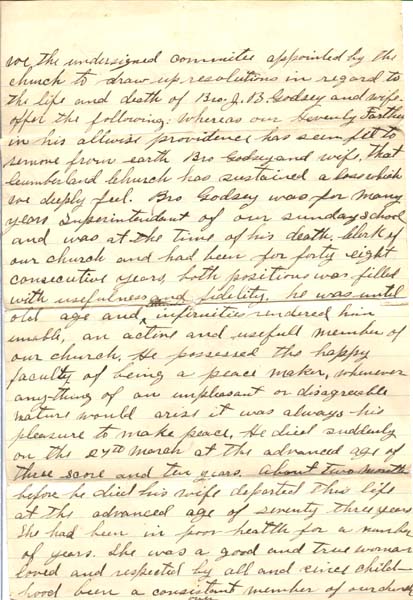 we the undersigned committee appointed by the
church to draw up resolutions in regard to
the life and death of Bro. J. B Godsey and wife.
offer the following. Whereas our Hevenly Father
in his allwise providence has seen fit to
remove from earth Bro Godsey and wife, that
Cumberland Church has sustained a loss which
we deeply feel. Bro Godsey was for many
years Superintendant of our sunday school
and was at the time of his death. Clerk of
our church and had been for forty eight
consecutive years, both positions was filled
with usefulness and fidelity. he was until
old age and infirmities rendered him
unable, an active and usefull member of
our church, He possessed the happy
faculty of being a peace maker, whenever
any-thing of an unpleasant or disagreeable
nature would arise it was always his
pleasure to make peace, He died suddenly
on the 27th March at the advanced age of
three score and ten years. About two month
before he died his wife departed this life
at the advanced age of seventy three years
She had been in poor health for a number
of years. She was a good and true woman
loved and respected by all and since child
hood been a consistant member of our church